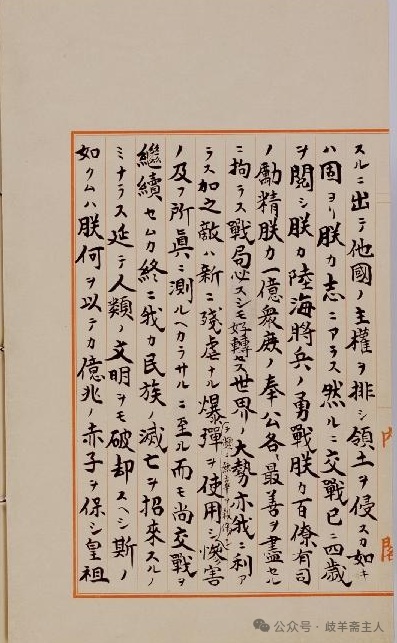 内閣
スルニ出テ他國ノ主權ヲ排シ領土ヲ侵スカ如キ
ハ固ヨリ朕カ志ニアラス然ルニ交戰已ニ四歳
ヲ閲シ朕カ陸海將兵ノ勇戰朕カ百僚有司
ノ勵精朕カ一億衆庶ノ奉公各〻最善ヲ盡セル
ニ拘ラス戰局必スシモ好轉セス世界ノ大勢亦我ニ利ア
テ頻ニ無辜ヲ殺傷シ
ラス加之敵ハ新ニ殘虐ナル爆彈ヲ使用シ慘害
ノ及フ所眞ニ測ルヘカラサルニ至ル而モ尚交戰ヲ
繼續セムカ終ニ我カ民族ノ滅亡ヲ招來スルノ
ミナラス延テ人類ノ文明ヲモ破却スヘシ斯ノ
如クムハ朕何ヲ以テカ億兆ノ赤子ヲ保シ皇祖
公众号·歧羊斋主人